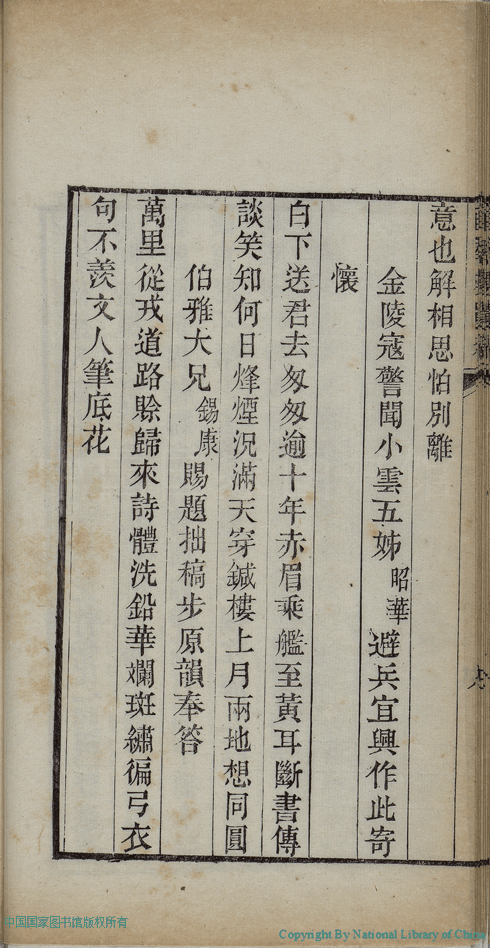 意也解相思怕別離
金陵寇警聞小雲五姊昭華避兵宜興作此寄
懷
白下送君去匆匆逾十年赤眉乘艦至黃耳斷書傳
談笑知何日烽煙況滿天穿鍼樓上月兩地想同圓
伯雅大兄錫康賜題拙稿步原韻奉答
萬里從戎道路賒歸來詩體洗鉛華斕斑繡徧弓衣
句不羨文人筆底花
中国国家图书馆版权所有
Copyright By National Library of China